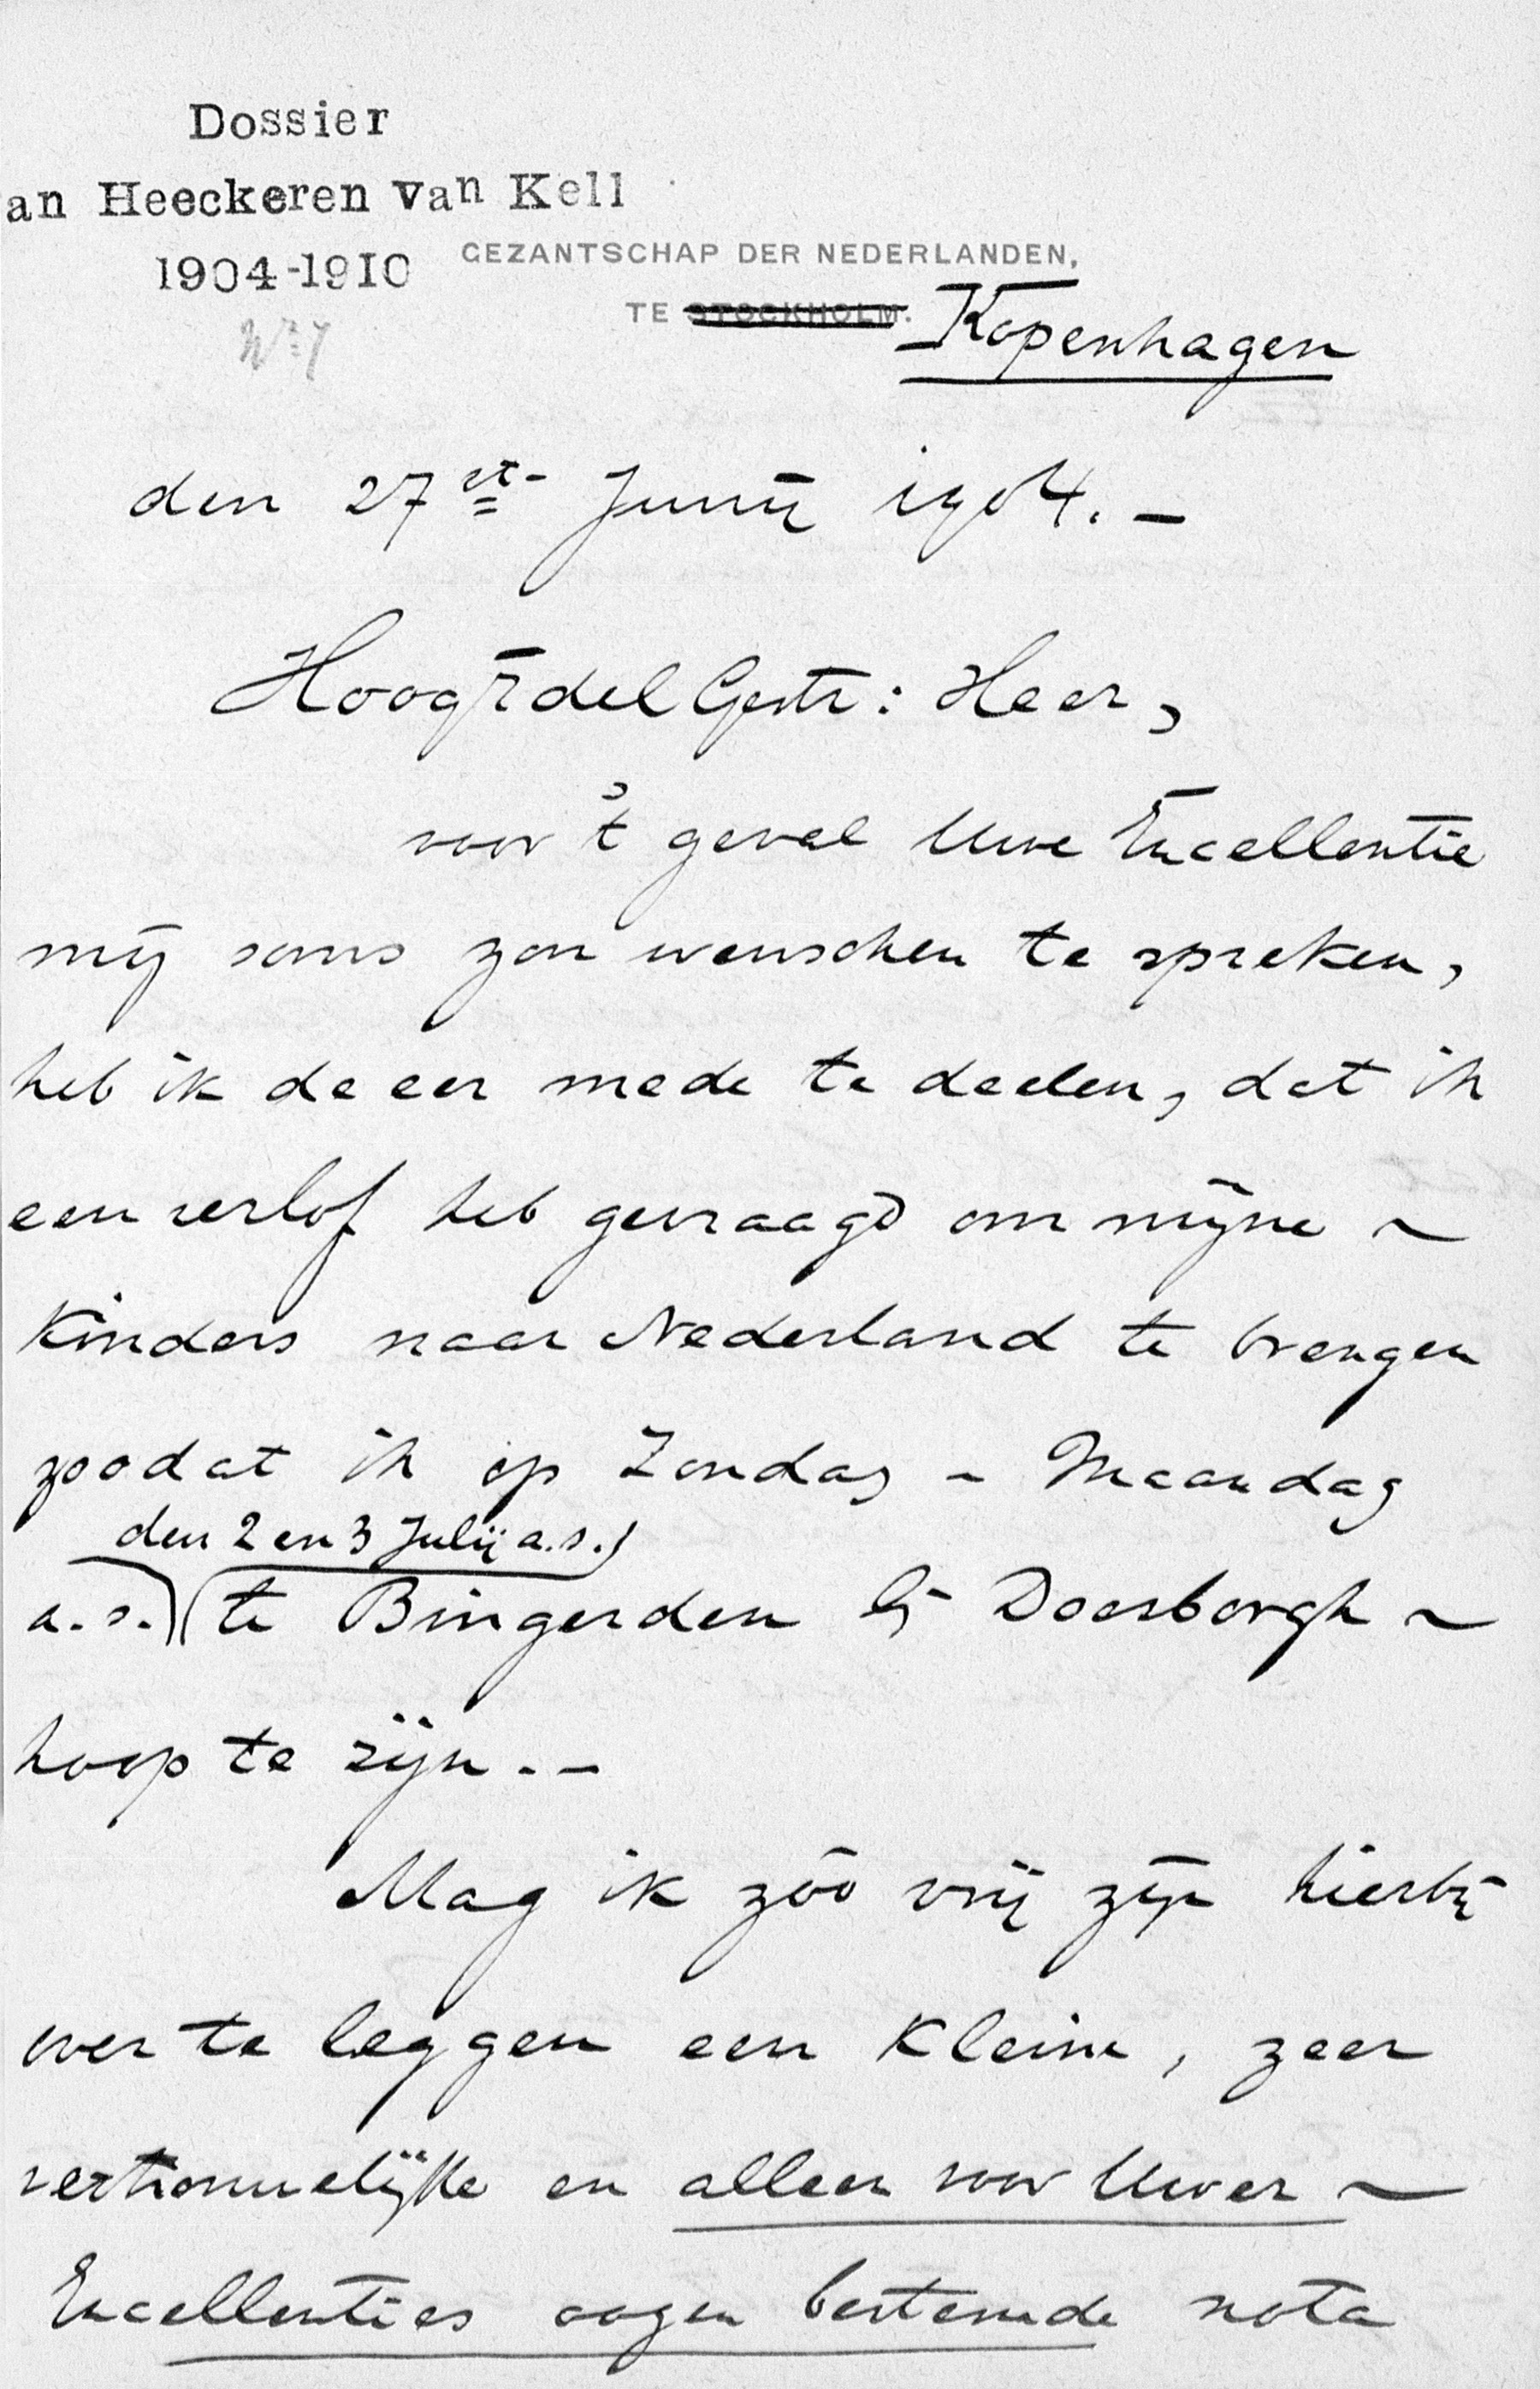 Dossier
an Heeckeren van Kell
1904-1910
No 7
GEZANTSCHAP DER NEDERLANDEN,
TE STOCKHOLM. Kopenhagen
den 27st- Junij 1904. -
HoogEdelGestr: Heer,
voor 't geval Uwe Excellentie
mij soms zou wenschen te spreken,
heb ik de eer mede te deelen, dat ik
een verlof heb gevraagd om mijne ~
Kinders naar Nederland te brengen
zoodat ik op Zondag - Maandag
den 2 en 3 Julij a.s.)
a.s.) (te Bingerden bij Doesborgh ~
hoop te zijn. -
Mag ik zóó vrij zijn hierbij
over te leggen een Kleine, zeer
vertrouwelijke en alleen voor Uwer ~
Excellenties oogen bestemde nota